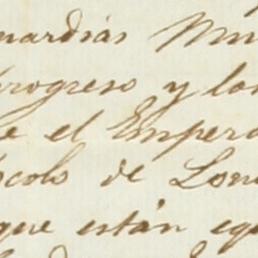 uardias Mu
rogreso y la
e el Empera
ocolo de Lon
que están equ